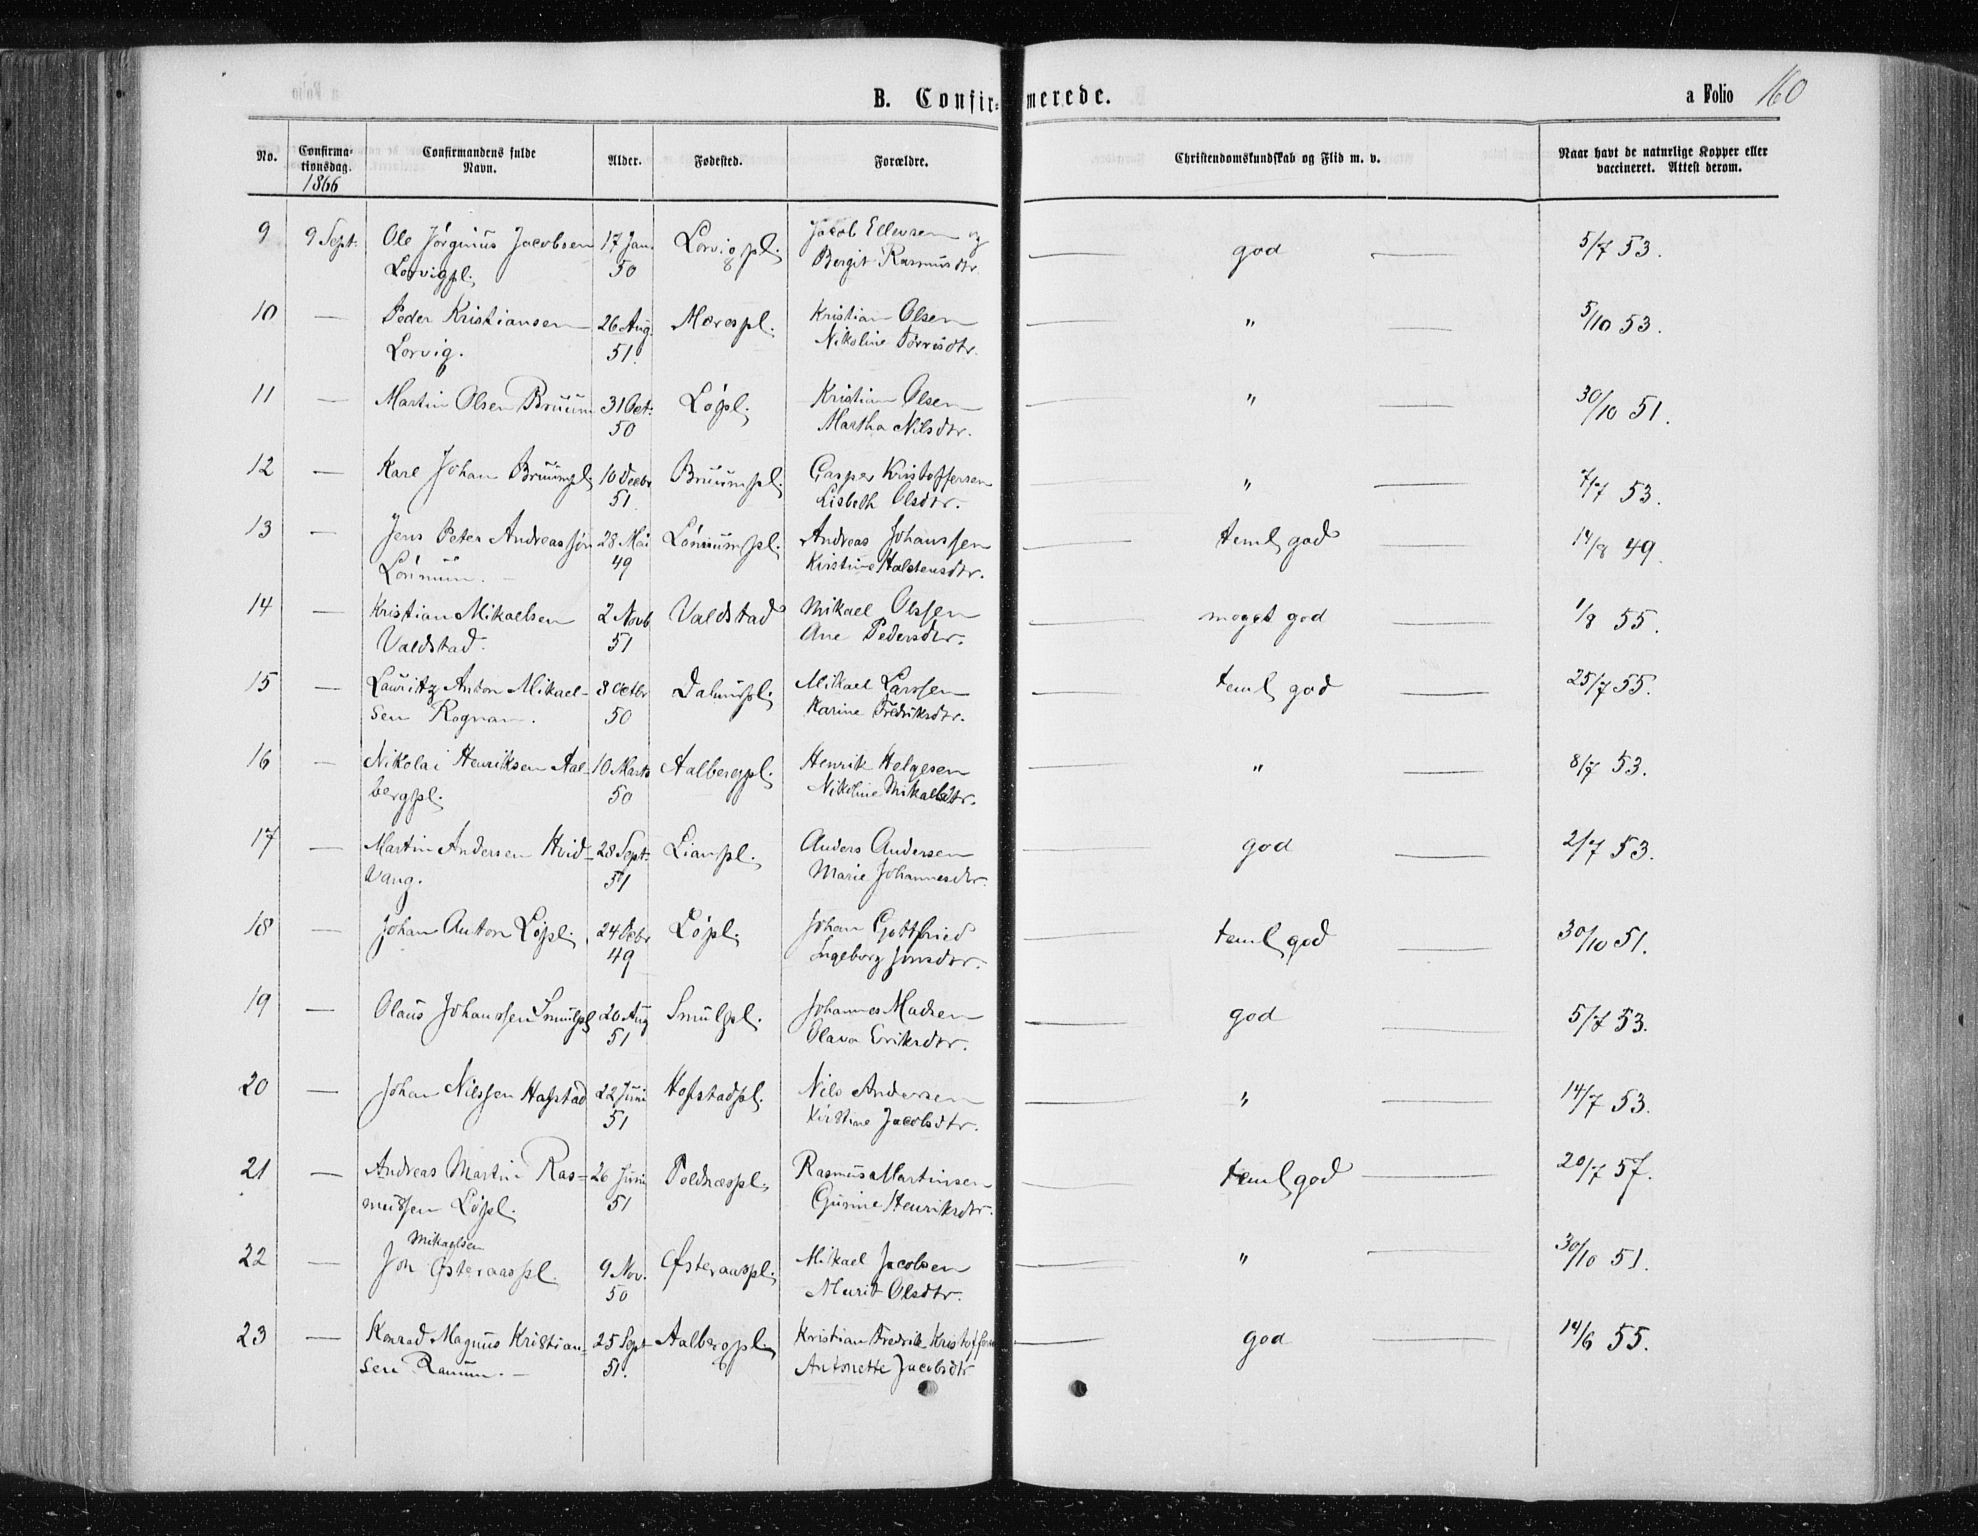 B. Confirmerede.
a Folio 160
No.
Confirmationsdag. 1866
Confirmandens fulde Navn.
Alder.
Fødested.
Forældre.
Christendomskundskab og Flid m. v.
Naar havt de naturlige Kopper eller vaccineret. Attest derom.
9 9 Sept. Ole Jørginus Jacobsen 17 Jan. Lorvigpl. Jacob Ellevsen og — god — 5/7 53.
Lorvigpl. 50 Bergit Rasmusdtr.
10 — Peder Kristiansen 26 Aug. Mærespl. Kristian Olsen — " — 5/10 53.
Lorvig. 51. Nikoline Torrisdtr.
11 — Martin Olsen Bruum 31 Oct. Løpl. Kristian Olsen — " — 30/10 51.
50 Martha Nilsdtr.
12 — Karl Johan Bruumpl. 10 Decbr Bruumpl. Casper Kristoffersen — " — 7/7 53.
51. Lisbeth Olsdtr.
13 — Jens Peter Andreassøn 28 Mai Lønnumpl. Andreas Johanssen — teml god — 14/8 49.
Lønnum. 49 Kristine Halstensdtr.
14 — Kristian Mikaelsen 2 Novb Valdstad Mikael Olssen — meget god — 1/8 55.
Valdstad. 51 Ane Pedersdtr.
15 — Lauritz Anton Mikael- 8 Octbr Dalumpl. Mikael Larssen — teml god — 25/7 55.
sen Rognan. 50 Karine Fredriksdtr.
16 — Nikolai Henriksen Aal- 10 Marts Aalbergpl. Henrik Helgesen — " — 8/7 53.
bergpl. 50 Nikoline Mikaelsdtr.
17 — Martin Andersen Hvid- 28 Sept. Lianpl. Anders Andersen — god — 2/7 53.
vang. 51 Marie Johannesdtr.
18 — Johan Anton Løpl. 24 Octbr Løpl. Johan Gottfried — teml god — 30/10 51.
49 Ingeborg Jonsdtr.
19 — Olaus Johanssen Smulpl 20 Aug Smulpl. Johannes Madsen — god — 5/7 53.
51 Olava Eriksdtr.
20 — Johan Nilssen Hafstad 22 Juni Hofstadpl. Nils Andersen — " — 14/7 53.
51 Kirstine Jacobsdtr.
21 — Andreas Martin Ras= 26 Juni Toldnæspl. Rasmus Martinsen — teml god — 20/7 57.
mussen Løpl. 51 Gurine Henriksdtr.
22 — Jon Mikaelsen Østeraaspl. 9 Nov. Østeraaspl. Mikael Jacobsen — " — 30/10 51.
50 Marit Olsdtr.
23 — Konrad Magnus Kristian= 25 Sept Aalbergpl. Kristian Fredrik Kristoffersen — god — 14/6 55.
sen Ranum. — 51. Antonette Jacobsdtr